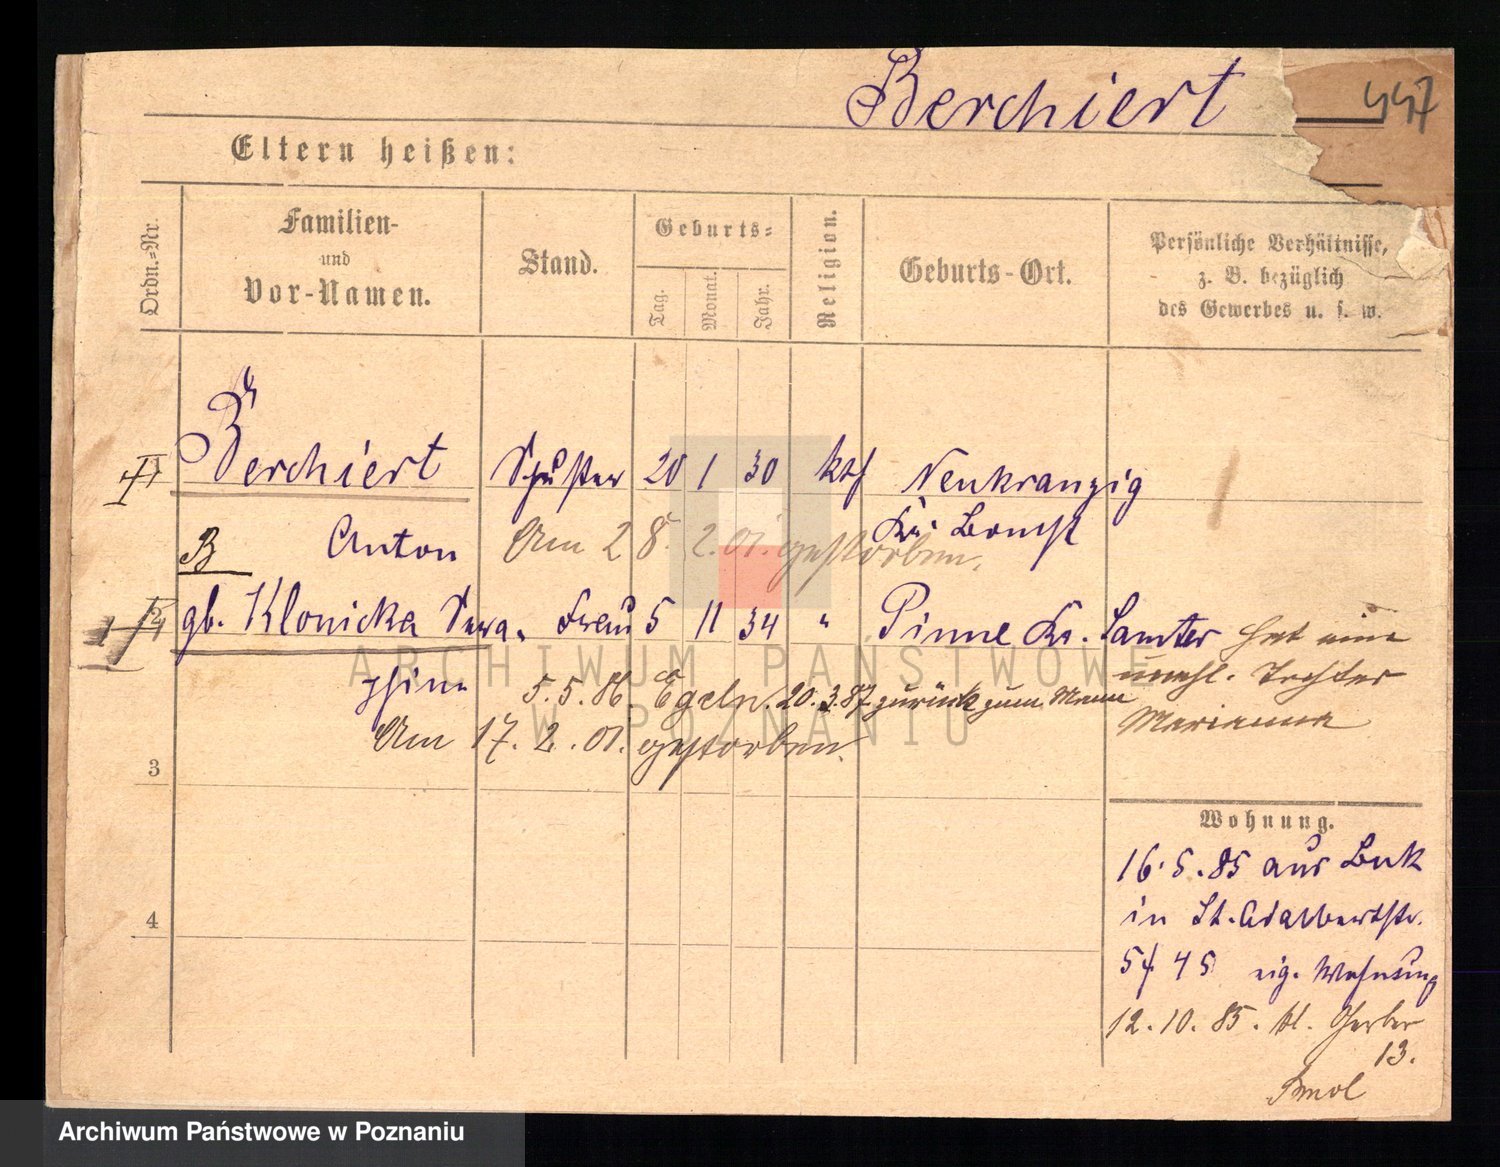 Berchiert
447
Eltern heißen:
Ordn.-Nr.
Familien-
und
Vor-Namen.
Stand.
Geburts-
Tag.
Monat.
Jahr.
Religion.
Geburts-Ort.
Persönliche Verhältnisse,
z. B. bezüglich
des Gewerbes u. s. w.
Berchiert Schuster 20 1 30 kth Neukranzig
Kr. Bomst
B Anton Am 28. 2. 01. gestorben.
2 gb. Klonicka Frau 5 11 34 " Pinne Kr. Samter hat eine
unehl. Tochter
Marianna
5.5.86. Egeln. 20.3.87. zurück zum Mann
Am 17. 2. 01. gestorben.
3
4
Wohnung.
16.5.85 aus Buk
in St. Adalbertstr.
eig. Wohnung
12.10.85. kl. Gerber
13.
ARCHIWUM PAŃSTWOWE
W POZNANIU
Archiwum Państwowe w Poznaniu